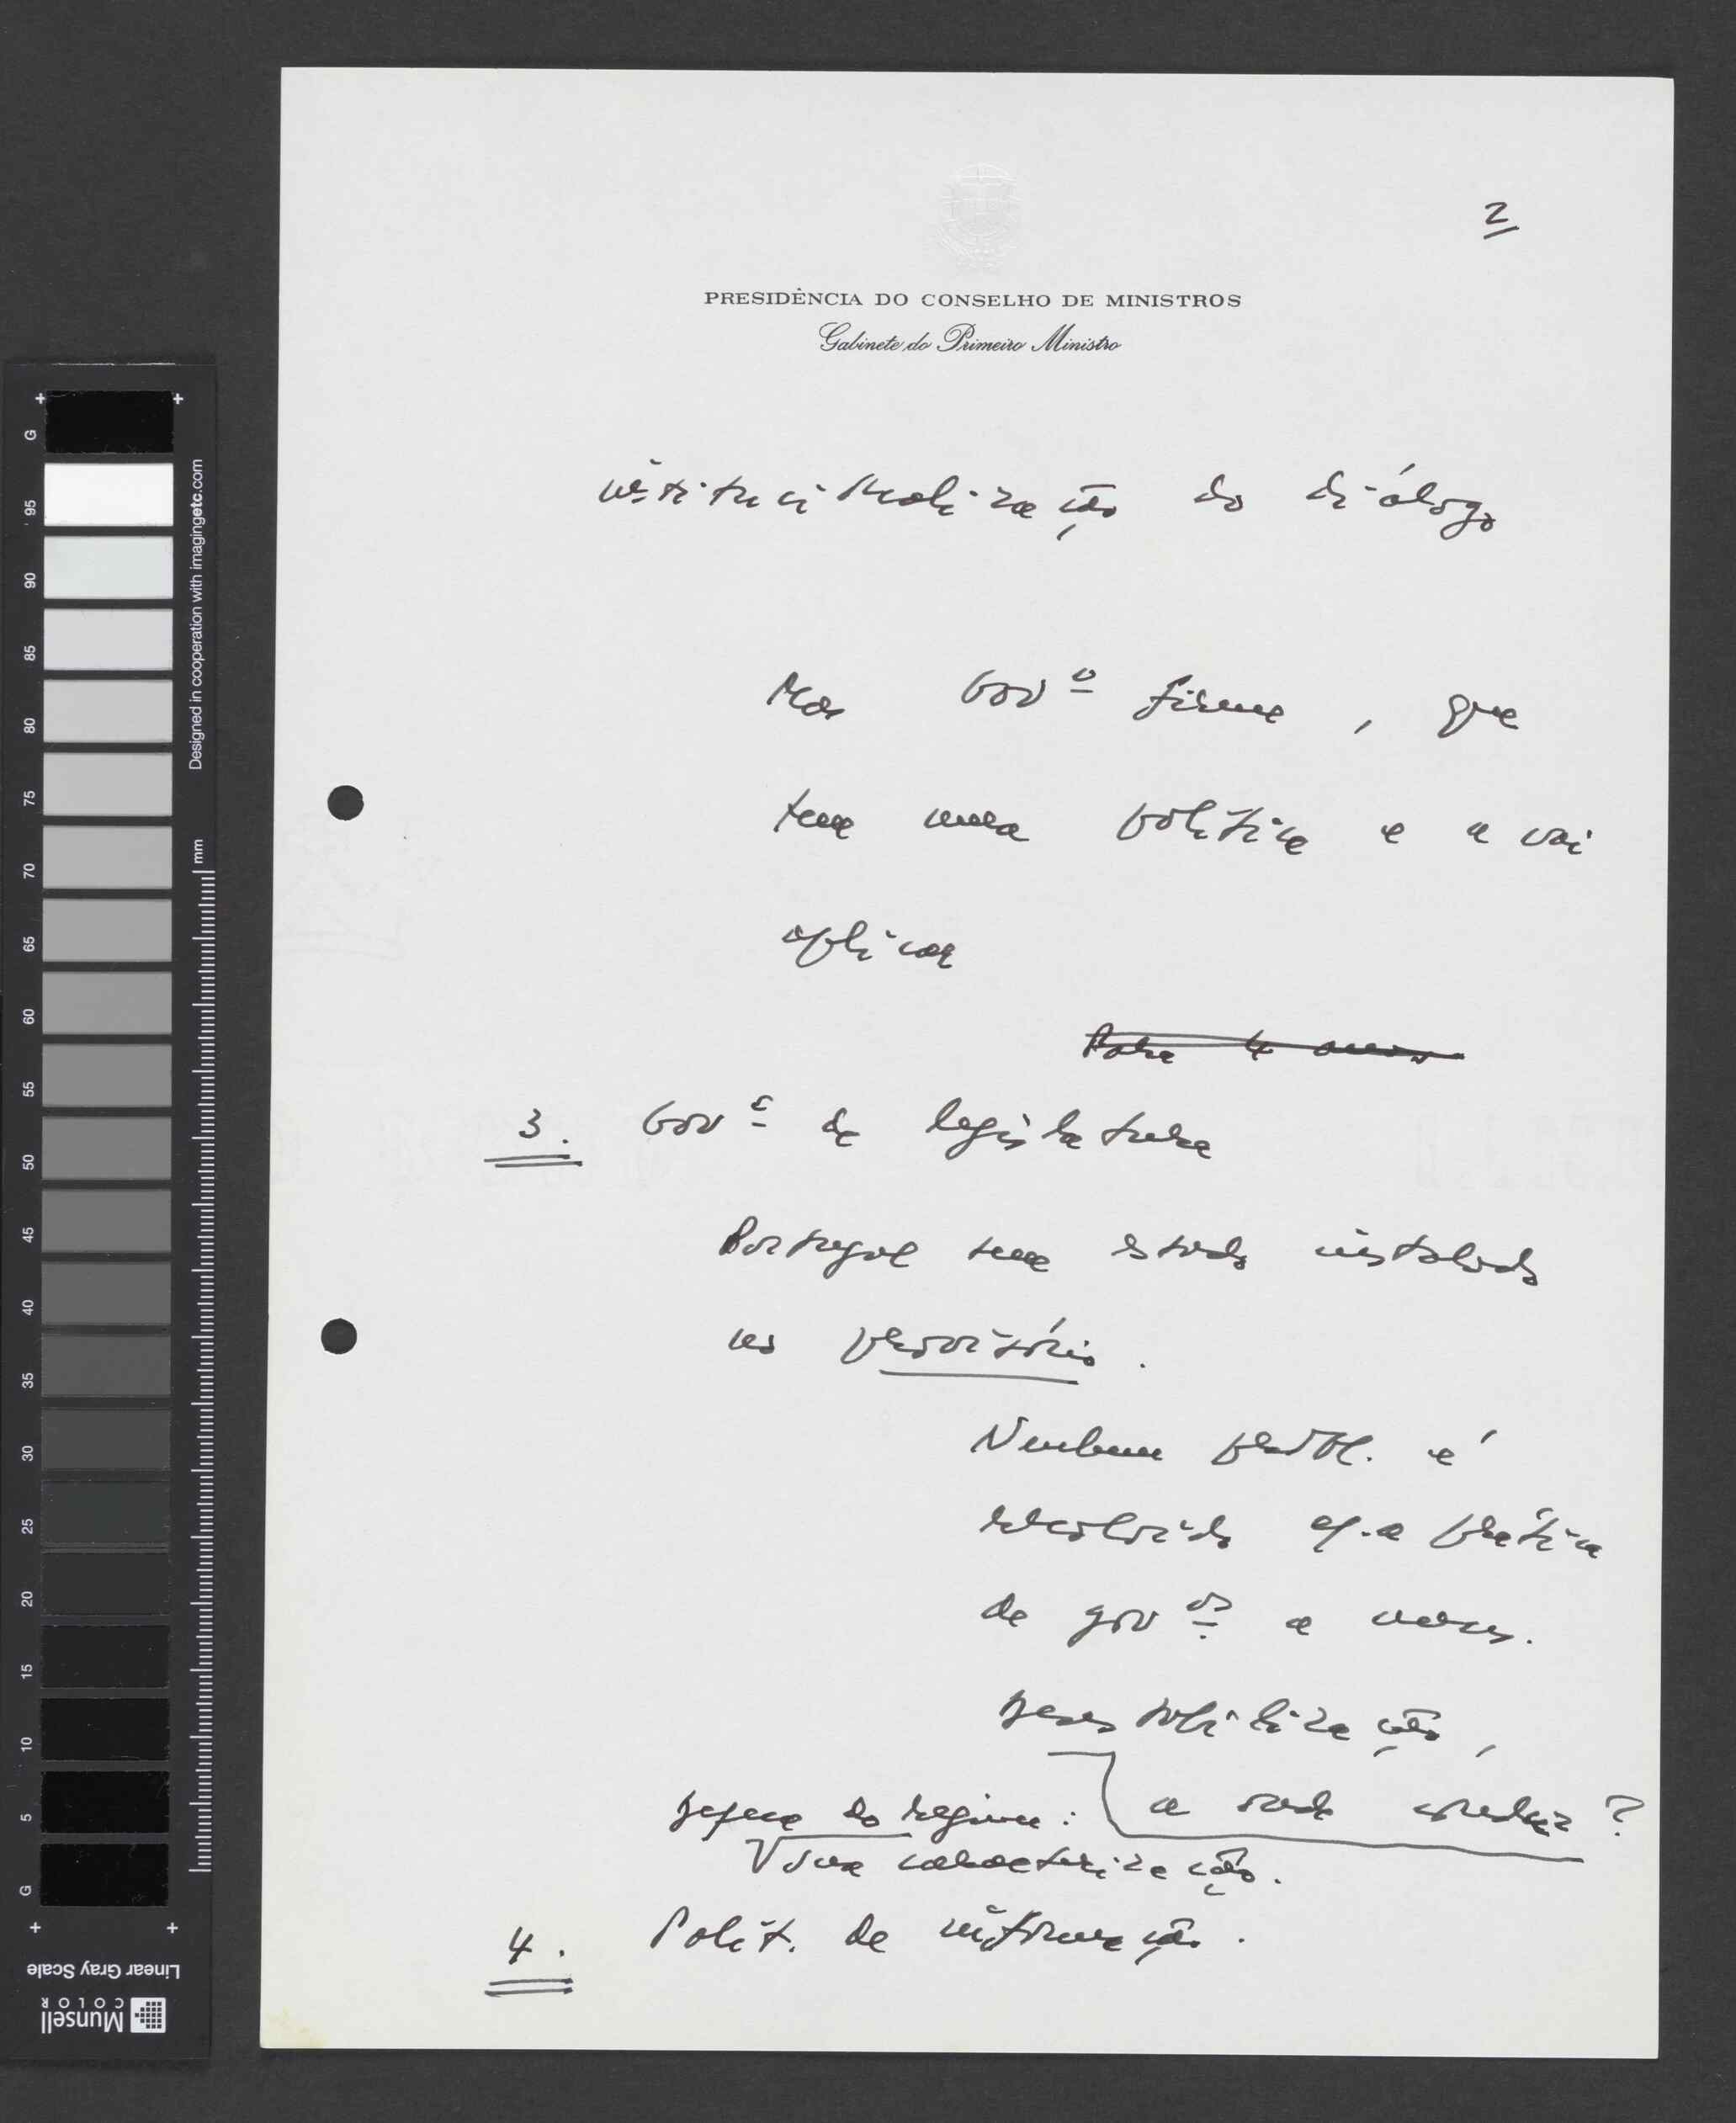 2
PRESIDÊNCIA DO CONSELHO DE MINISTROS
Gabinete do Primeiro Ministro
institucionalização do diálogo
Mas Govº firme, que
tem uma política e a vai
aplicar
Para 4 anos
3. Govº de legislatura
Portugal tem estado instalado
no provisório.
Nenhum probl. é
resolvido c/ a prática
de govºs a meses.
Desestabilização,
a nada conduz?
Defesa do regime:
V sua caracterização.
4. Polít. de informação.
+ +
G 95 90 85 80 75 70 65 60 55 50 45 40 35 30 25 20 15 10 5 G
+ +
Designed in cooperation with imagingetc.com
mm
Linear Gray Scale
Munsell
COLOR